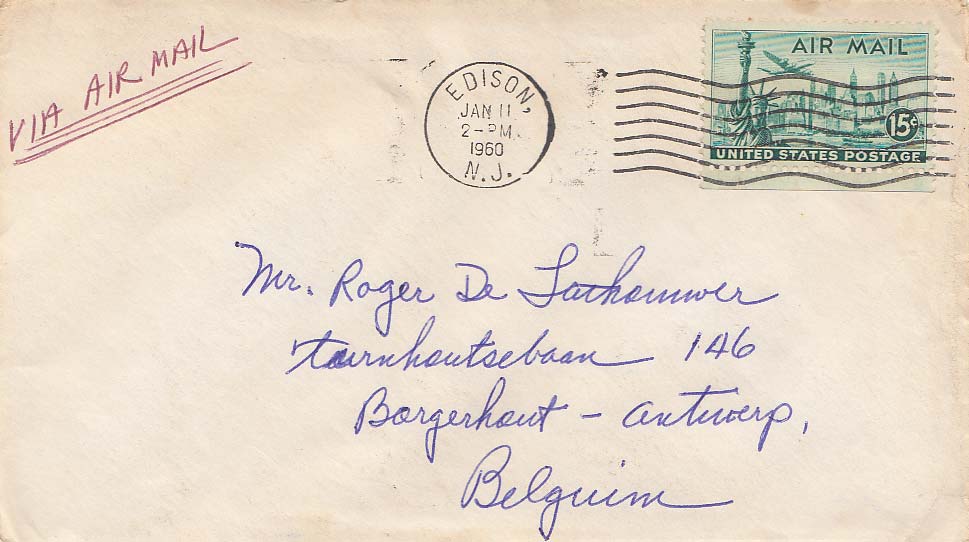 VIA AIR MAIL
EDISON,
JAN 11
2-PM
1960
N.J.
AIR MAIL
15¢
UNITED STATES POSTAGE
Mr. Roger De
tournhoutsebaan 146
Borgerhout - Antwerp,
Belguim